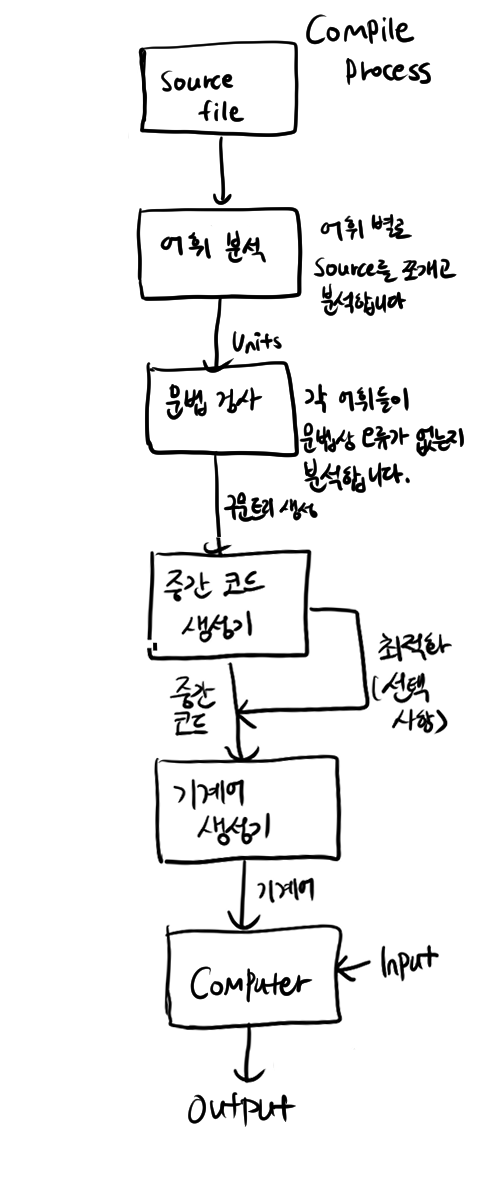 Compile
process
Source
file
어휘 분석
어휘 별로
Source를 쪼개고
분석합니다
Units
문법 검사
각 어휘들이
문법상 오류가 없는지
분석합니다.
구문트리 생성
중간 코드
생성기
최적화
(선택
사항)
중간
코드
기계어
생성기
기계어
Computer
Input
Output